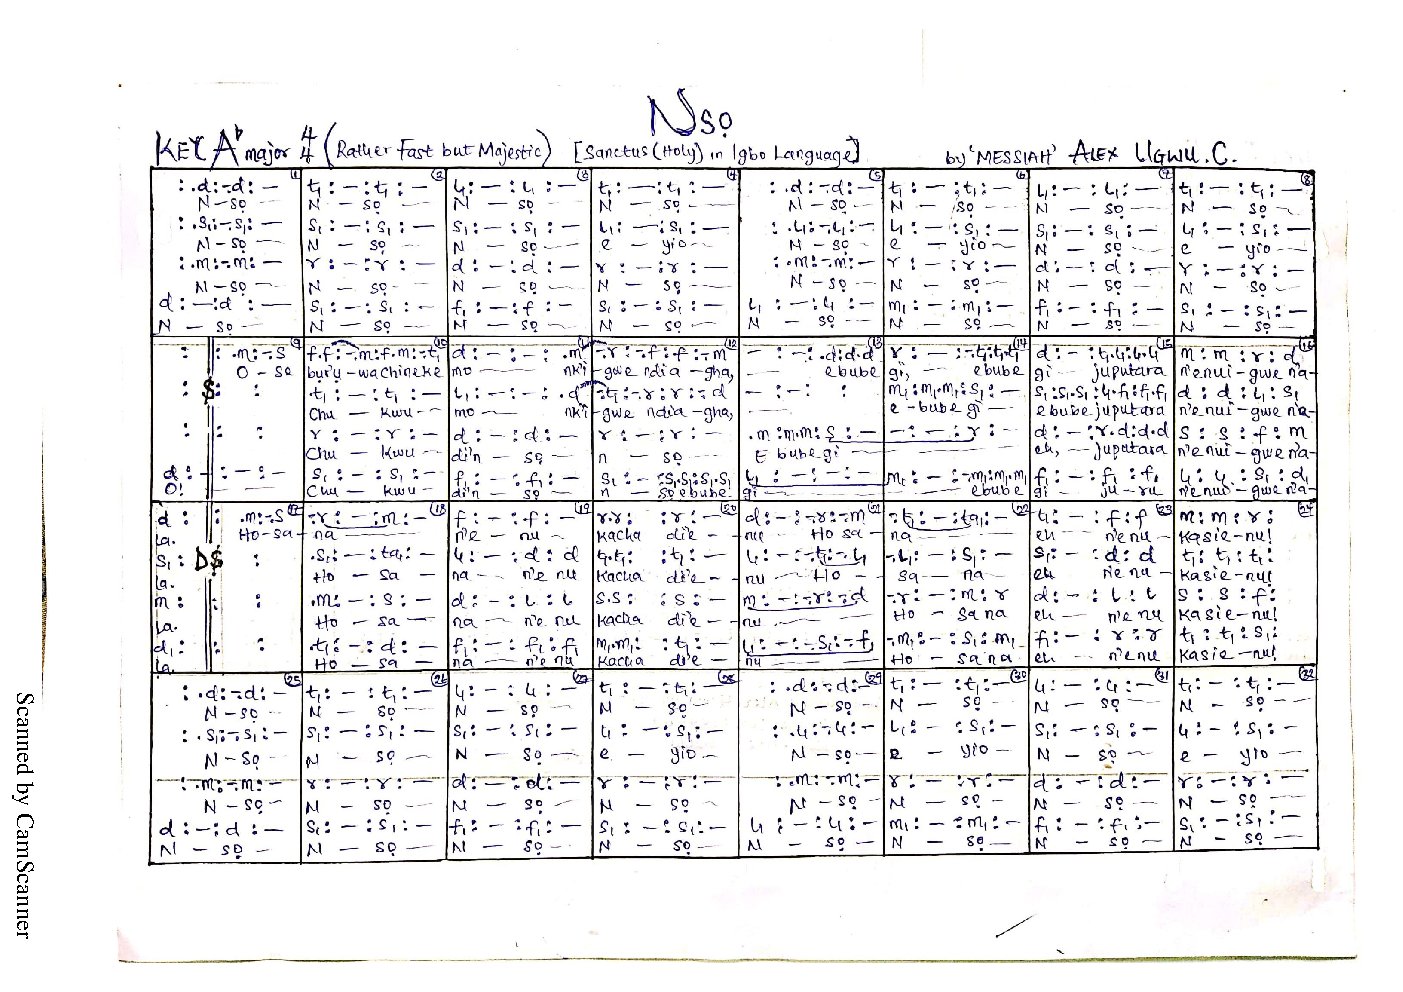 Nsọ
KEY A♭ major 4/4 (Rather Fast but Majestic) [Sanctus (Holy) in Igbo Language] by 'MESSIAH' ALEX UGWU. C.
1 2 3 4 5 6 7 8
: .d:-.d: — t₁ : — : t₁ : — l₁ : — : l₁ : — t₁ : — : t₁ : — : .d:-.d: — t₁ : — : t₁ : — l₁ : — : l₁ : — t₁ : — : t₁ : —
N – sọ — N — sọ — N — sọ — N — sọ — N – sọ — N — sọ — N — sọ — N — sọ —
: .s₁:-.s₁: — s₁ : — : s₁ : — s₁ : — : s₁ : — l₁ : — : s₁ : — : .l₁:-.l₁: — l₁ : — : s₁ : — s₁ : — : s₁ : — l₁ : — : s₁ : —
N – sọ — N — sọ — N — sọ — e — yio — N – sọ — e — yio — N — sọ — e — yio —
: .m:-.m: — r : — : r : — d : — : d : — r : — : r : — : .m:-.m: — r : — : r : — d : — : d : — r : — : r : —
N – sọ — N — sọ — N — sọ — N — sọ — N – sọ — N — sọ — N — sọ — N — sọ —
d : — : d : — s₁ : — : s₁ : — f₁ : — : f : — s₁ : — : s₁ : — l₁ : — : l₁ : — m₁ : — : m₁ : — f₁ : — : f₁ : — s₁ : — : s₁ : —
N — sọ — N — sọ — N — sọ — N — sọ — N — sọ — N — sọ — N — sọ — N — sọ —
9 10 11 12 13 14 15 16
: : .m:-.s f.f:-.m:f.m:-.t₁ d : — : — : .m -.r:-.f:f:-.m — : — : .d:d.d r : — : -.t₁:t₁.t₁ d : — : t₁.l₁:l₁.l₁ m : m : r : d
O – se buru – wachineke mo — nk'i – gwe ndia – gha, ebube gi, — ebube gi — juputara n'enui – gwe na –
: : : .t₁ : — : t₁ : — l₁ : — : — : .d -.t₁:-.r:r:-.d — : — : : m₁:m₁.m₁:s₁: — s₁:s₁.s₁:l₁.f₁:f₁.f₁ d : d : l₁ : s₁
Chu — kwu — mo — nk'i – gwe ndia – gha, e – bube gi — ebube juputara n'enui – gwe na –
: : : r : — : r : — d : — : d : — r : — : r : — .m:m.m:s: — — : — : r : — d : — : r.d:d.d s : s : f : m
Chu — kwu — di'n — sọ — n — sọ — E bube gi — eh, — juputara n'enui – gwe na –
d : — : — : — s₁ : — : s₁ : — f₁ : — : f₁ : — s₁ : — : -.s₁:s₁.s₁ l₁ : — : — : — m₁ : — : -.m₁:m₁.m₁ f₁ : — : f₁ : f₁ l₁ : l₁ : s₁ : d₁
O! Chu — kwu — di'n — sọ — n — so ebube gi — ebube gi ju – ru n'enui – gwe na –
17 18 19 20 21 22 23 24
d : : .m:-.s -.r: — : m: — f : — : f : — r.r: : r : — d : — : -.r:-.m -.t₁: — : ta₁: — l₁ : — : f : f m : m : r :
la. Ho – sa – na — n'e — nu — kacha di'e — nu — Ho sa na — eh — n'enu – kasie – nu!
s₁ : D.S : .s₁: — : ta₁: — l₁ : — : d : d t₁.t₁: : t₁ : — l₁ : — : -.t₁: — .l₁ -.l₁: — : s₁: — s₁ : — : d : d t₁ : t₁ : t₁ :
la. Ho — sa — na — n'e nu kacha di'e — nu — Ho — sa — na — eh n'enu – kasie – nu!
m : : : .m: — : s : — d : — : l : l s.s: : s : — m : — : -.r:-.d -.r: — : m : r d : — : l : l s : s : f :
la. Ho — sa — na — n'e nu kacha di'e — nu — Ho — sa na eh — n'enu kasie – nu!
d₁ : : : .t₁: — : d : — f₁ : — : f₁ : f₁ m₁.m₁: : t₁ : — l₁ : — : -.s₁:-.f₁ -.m₁: — : s₁ : m₁ f₁ : — : r : r t₁ : t₁ : s₁ :
la. Ho — sa — na — n'e nu kacha di'e — nu — Ho — sa na eh — n'enu kasie – nu!
25 26 27 28 29 30 31 32
: .d:-.d: — t₁ : — : t₁ : — l₁ : — : l₁ : — t₁ : — : t₁ : — : .d:-.d: — t₁ : — : t₁ : — l₁ : — : l₁ : — t₁ : — : t₁ : —
N – sọ — N — sọ — N — sọ — N — sọ — N – sọ — N — sọ — N — sọ — N — sọ —
: .s₁:-.s₁: — s₁ : — : s₁ : — s₁ : — : s₁ : — l₁ : — : s₁ : — : .l₁:-.l₁: — l₁ : — : s₁ : — s₁ : — : s₁ : — l₁ : — : s₁ : —
N – sọ — N — sọ — N — sọ — e — yio — N – sọ — e — yio — N — sọ — e — yio —
: .m:-.m: — r : — : r : — d : — : d : — r : — : r : — : .m:-.m: — r : — : r : — d : — : d : — r : — : r : —
N – sọ — N — sọ — N — sọ — N — sọ — N – sọ — N — sọ — N — sọ — N — sọ —
d : — : d : — s₁ : — : s₁ : — f₁ : — : f₁ : — s₁ : — : s₁ : — l₁ : — : l₁ : — m₁ : — : m₁ : — f₁ : — : f₁ : — s₁ : — : s₁ : —
N — sọ — N — sọ — N — sọ — N — sọ — N — sọ — N — sọ — N — sọ — N — sọ —
Scanned by CamScanner